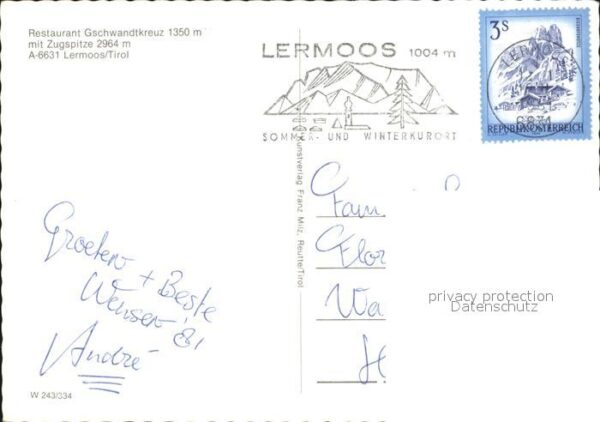 Restaurant Gschwandtkreuz 1350 m
mit Zugspitze 2964 m
A-6631 Lermoos/Tirol
LERMOOS 1004 m
SOMMER- UND WINTERKURORT
3 S
REPUBLIK ÖSTERREICH
LERMOOS
Kunstverlag Franz Milz, Reutte/Tirol
Groeten
+ Beste
Wensen
André
Fam
Flor
Wa
H
privacy protection
Datenschutz
W 243/334